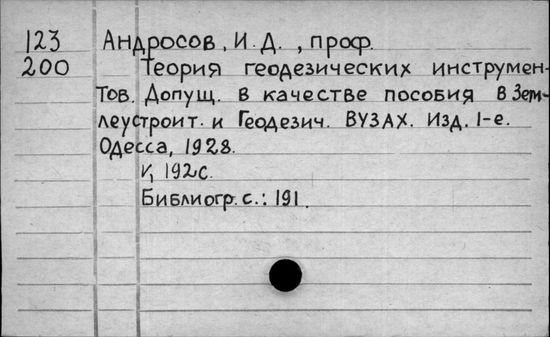 123 Андросов, И. Д. , проф.
200 Теория геодезических инструмен-
тов. Допущ. в качестве пособия в Зем-
леустроит. и Геодезич. ВУЗАХ. Изд. 1-е.
Одесса, 1928.
V, 192с.
Библиогр. с.: 191.